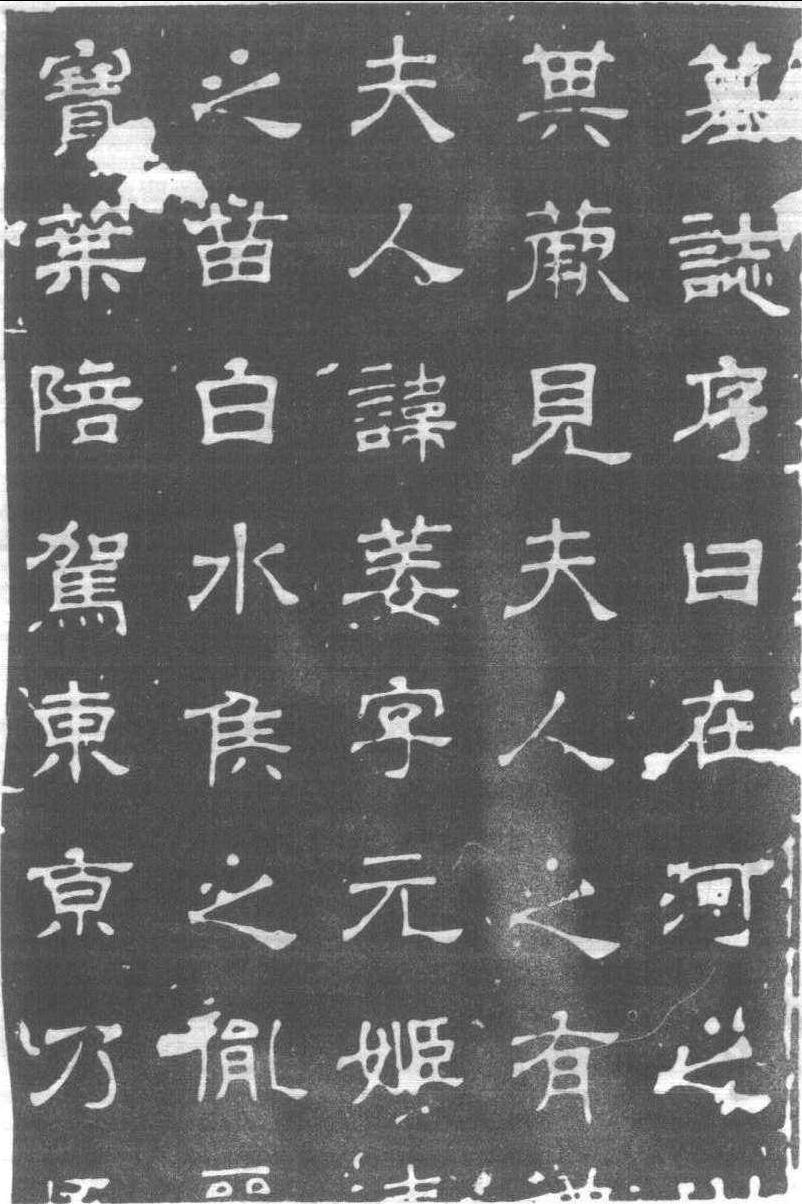 墓誌序曰在河之
異蕨見夫人之有
夫人諱字元姬
之苗白水侯之胤
寶葉陪駕東京乃